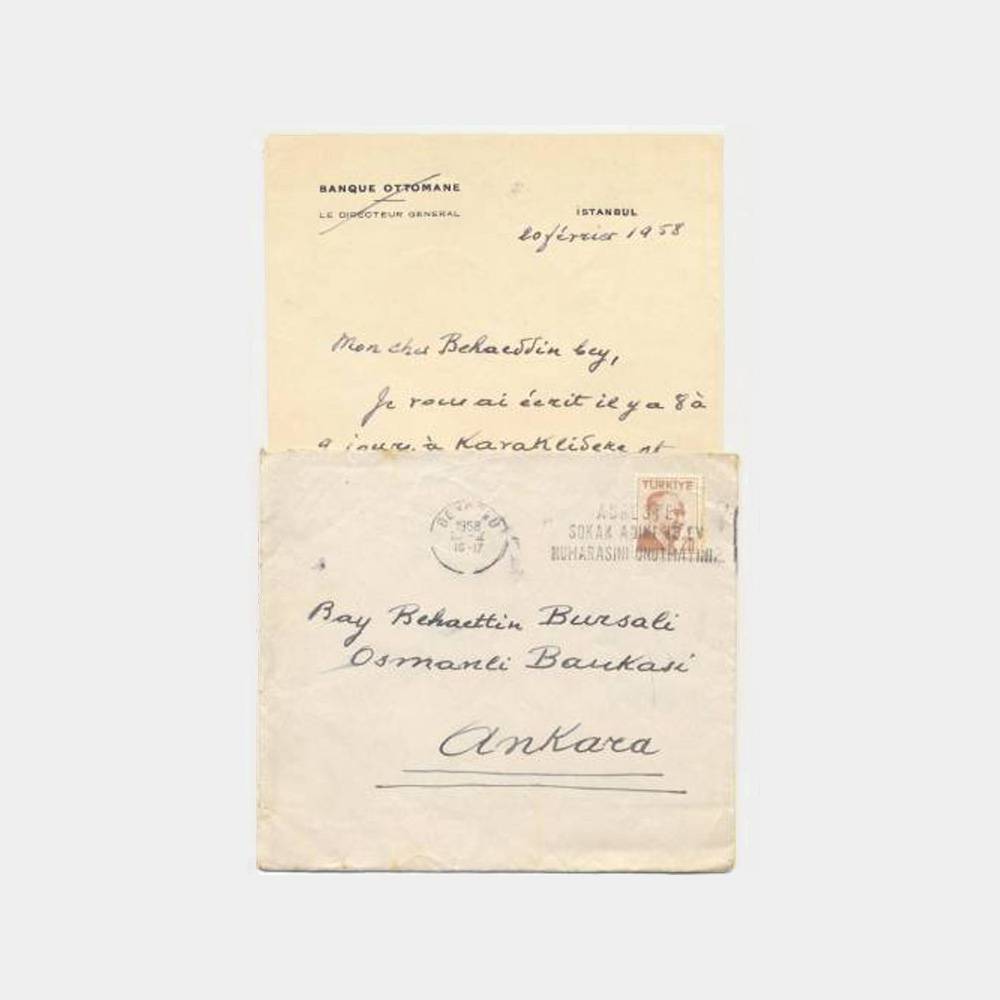 BANQUE OTTOMANE
LE DIRECTEUR GENERAL
İSTANBUL
20 février 1958
Mon cher Behaeddin bey,
Je vous ai écrit il y a 8 à
9 jours, à Karaklidere et
TÜRKİYE
1958
16-17
SOKAK ADINI VE EV
NUMARASINI UNUTMAYINIZ
Bay Behaettin Bursali
Osmanli Bankasi
Ankara